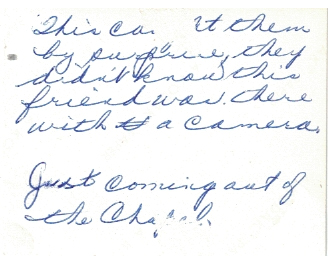 This ca t them
by surprise, they
didn't know this
friend was there
with a camera.
Just coming out of
the Chapel.